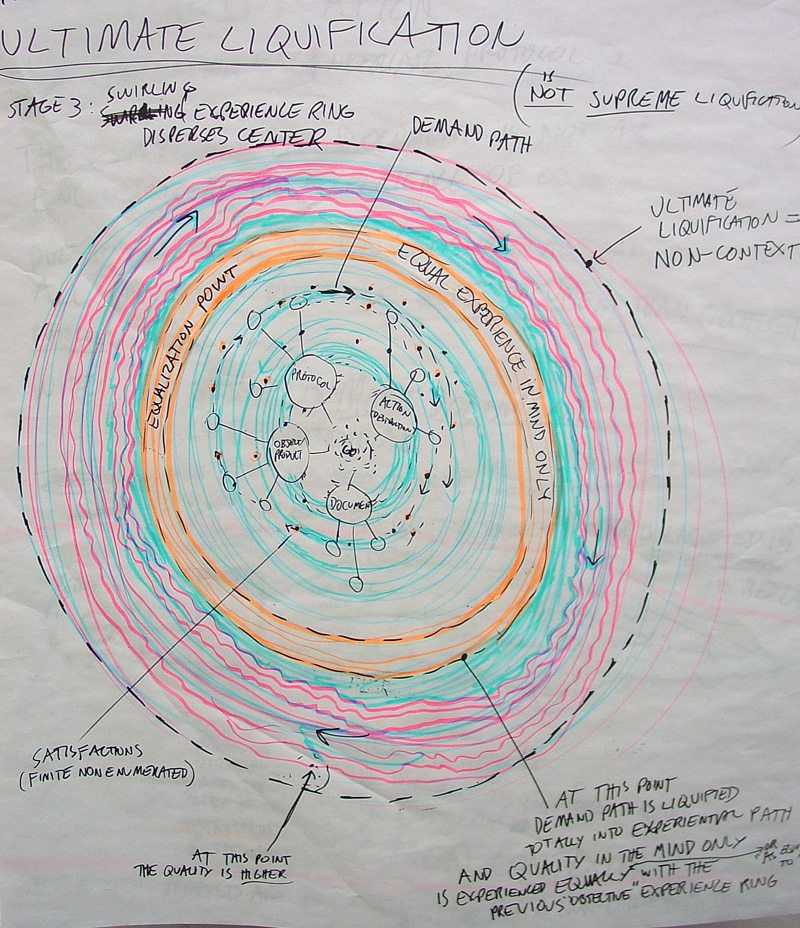 ULTIMATE LIQUIFICATION
(IS
NOT SUPREME LIQUIFICATION
STAGE 3: SWIRLING
EXPERIENCE RING
DISPERSES CENTER
DEMAND PATH
ULTIMATE
LIQUIFICATION =
NON-CONTEXT
EQUALIZATION POINT
EQUAL EXPERIENCE IN MIND ONLY
PROTOCOL
ACTION
OBJECT/
PRODUCT
DOCUMENT
SATISFACTIONS
(FINITE NONENUMERATED)
AT THIS POINT
THE QUALITY IS HIGHER
AT THIS POINT
DEMAND PATH IS LIQUIFIED
TOTALLY INTO EXPERIENTIAL PATH
AND QUALITY IN THE MIND ONLY
IS EXPERIENCED EQUALLY WITH THE
PREVIOUS "OBJECTIVE" EXPERIENCE RING
OR
"AS
TO